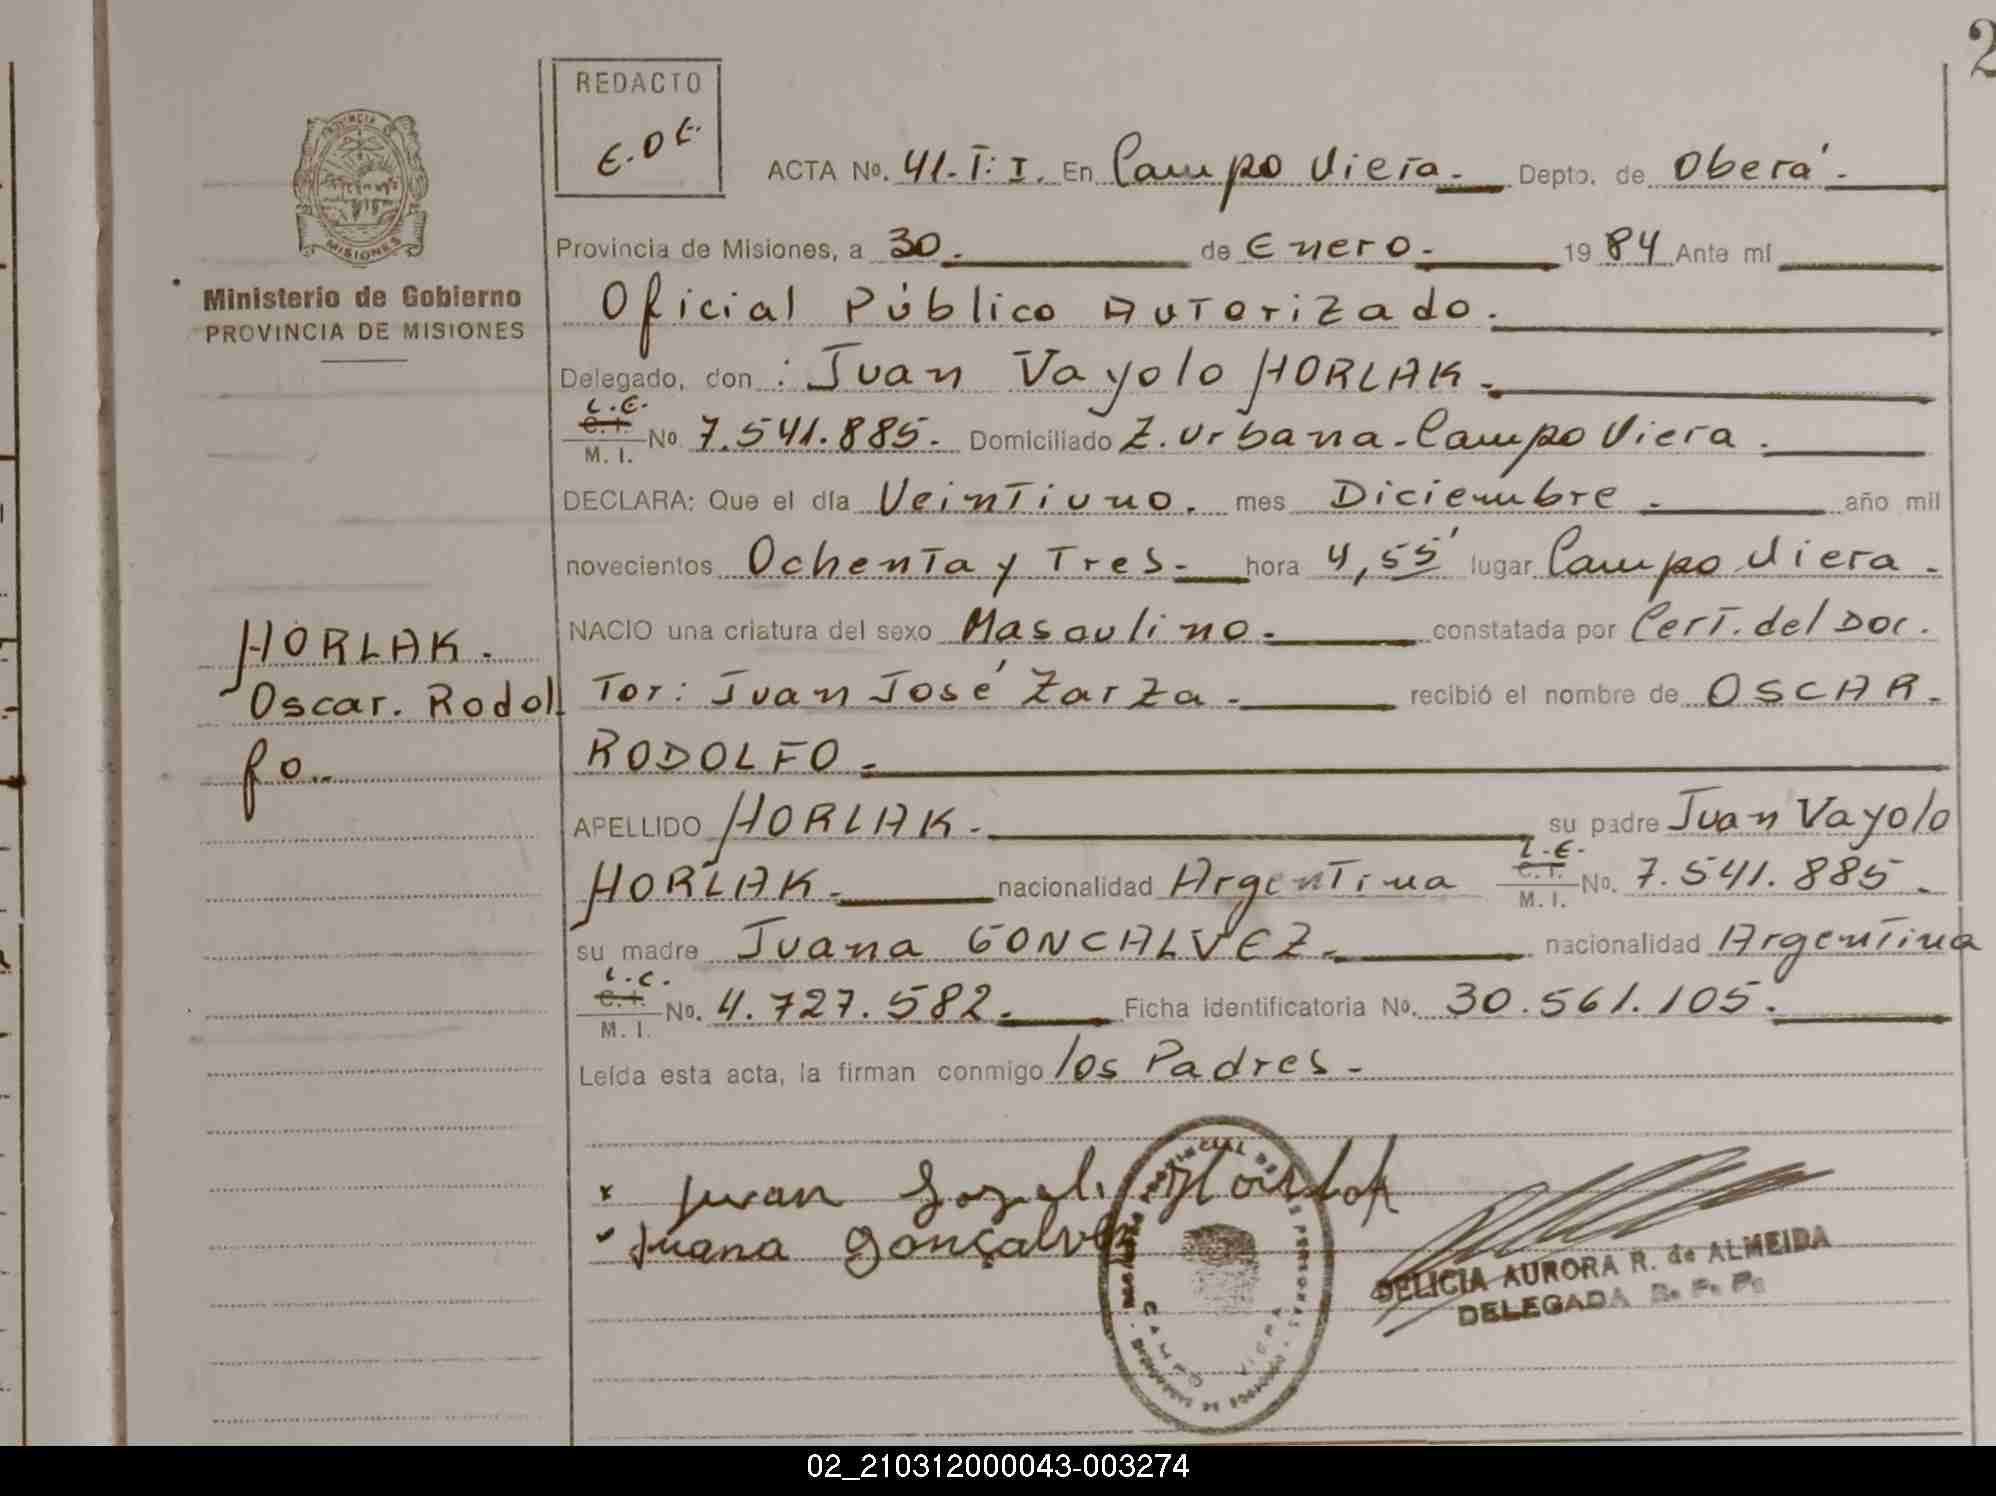 2
REDACTO
E.D.E.
PROVINCIA DE
MISIONES
Ministerio de Gobierno
PROVINCIA DE MISIONES
ACTA No. 41.T:I. En Campo Viera.- Depto. de Oberá.-
Provincia de Misiones, a 30. de Enero. 1984 Ante mí
Oficial Público Autorizado.
Delegado, don : Juan Vayolo HORLAK.
L.E.
C.I.
M. I. No. 7.541.885. Domiciliado Z. Urbana. Campo Viera.
DECLARA: Que el día Veintiuno. mes Diciembre. año mil
novecientos Ochenta y Tres.- hora 4,55' lugar Campo Viera.
NACIO una criatura del sexo Masculino.- constatada por Cert. del Doc.
HORLAK.
Oscar. Rodol
fo..
Tor: Juan José Zarza.- recibió el nombre de OSCAR.
RODOLFO.-
APELLIDO HORLAK.- su padre Juan Vayolo
HORLAK.- nacionalidad Argentina L.E. C.I. M. I. No. 7.541.885.
su madre Juana GONCALVEZ.- nacionalidad Argentina
L.C.
C.I.
M. I. No. 4.727.582. Ficha identificatoria No. 30.561.105.
Leída esta acta, la firman conmigo los Padres.-
Juan Horlak
Juana Gonçalve
CAMPO VIERA
DELICIA AURORA R. de ALMEIDA
DELEGADA R. P. P.
02_210312000043-003274